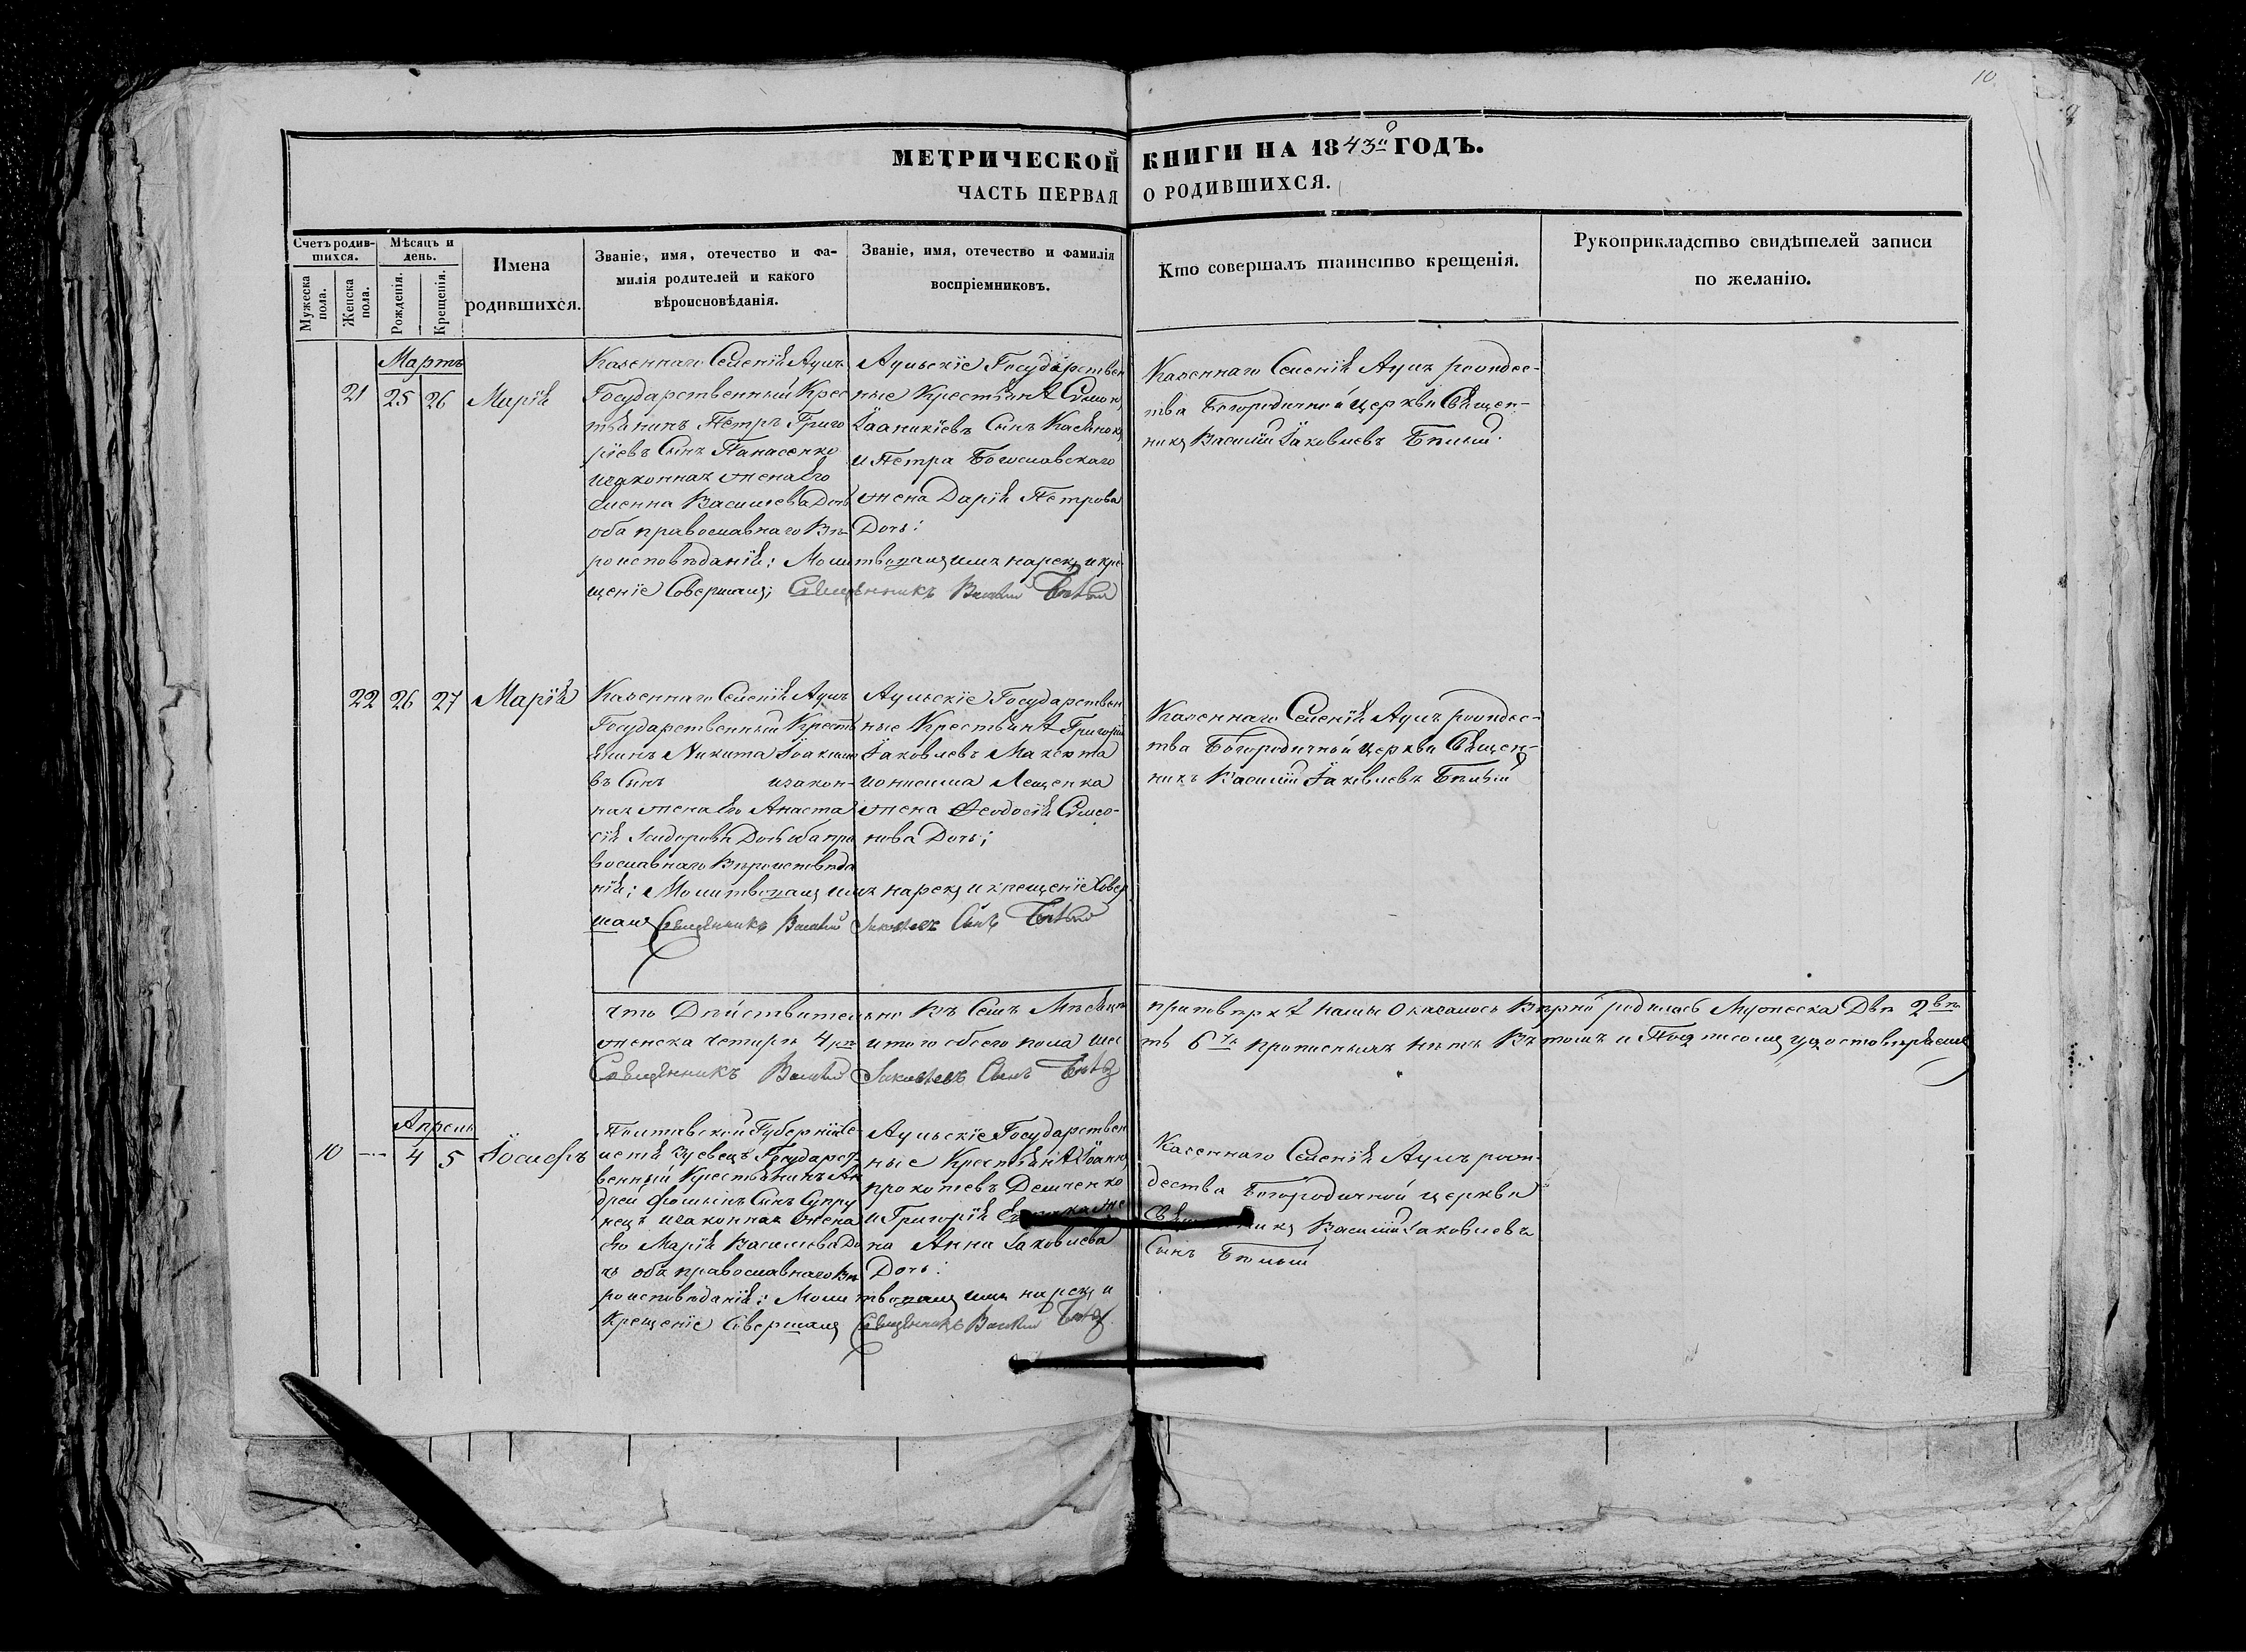 10
МЕТРИЧЕСКОЙ КНИГИ НА 1843й ГОДЪ.
ЧАСТЬ ПЕРВАЯ О РОДИВШИХСЯ.
Счетъ родив-
шихся.
Мужеска пола.
Женска пола.
Мѣсяцъ и
день.
Рожденія.
Крещенія.
Имена
родившихся.
Званіе, имя, отечество и фа-
милія родителей и какого
вѣроисповѣданія.
Званіе, имя, отечество и фамилія
воспріемниковъ.
Кто совершалъ таинство крещенія.
Рукоприкладство свидѣтелей записи
по желанію.
Мартъ
21 25 26 Марія
Казеннаго Селенія Аулъ
Государственный Крес
тьянинъ Петръ Григо
ріевъ Сынъ Панасенко
изаконная жена Его
Васильева Дочь
оба православнаго Вѣ
роисповѣданія: Молитвовалъ имъ нарекъ и кре
щеніе Совершалъ; Священникъ Василій Бѣлый
Аульскіе Государствен
ные Крестьяне
Іоаникіевъ Сынъ
и Петра Богославскаго
жена Дарія Петрова
Дочь:
Казеннаго Селенія Аулъ рождес-
тва Богородичной церкви Священ-
никъ Василій Іаковлевъ Бѣлый.
22 26 27 Марія
Казеннаго Селенія Аулъ
Государственный Кресть
янинъ Никита Іоакимо
въ Сынъ изакон-
ная жена Его Анаста
сія Исидорова Дочь оба пра
вославнаго Вѣроисповѣда
нія: Молитвовалъ имъ нарекъ и крещеніе Совер
шалъ Священникъ Василій Іаковлевъ Сынъ Бѣлый
Аульскіе Государствен
ные Крестьяне Григорій
Іаковлевъ
ионисима Лещенка
жена Феодосія Симео-
нова Дочь;
Казеннаго Селенія Аулъ рождес-
тва Богородичной церкви Священ-
никъ Василій Іаковлевъ Бѣлый
что Дѣйствительно Въ Семъ Мѣсяцѣ приповѣркѣ нами Оказалось Вѣрно родилось Мужеска Двѣ 2вѣ
женска четыри 4ри итого обоего пола шес ть 6ть прописныхъ нѣтъ Въ томъ и Подписомъ удостовѣряемъ
Священникъ Василій Іаковлевъ Сынъ
Апрель
10 — 4 5 Іосифъ
Полтавской Губерніи Се-
ленія Государст-
венный Крестьянинъ Ан
дрей Фоминъ Сынъ Супру
нецъ изаконная жена
Его Марія Васильева До
чь оба православнаго Вѣ
роисповѣданія: Молитвовалъ имъ нарекъ и
Крещеніе Совершалъ Священникъ Василій
Аульскіе Государствен
ные Крестьяне Іоаннъ
прокопіевъ Демченко
и Григорія же
на Анна Іаковлева
Дочь:
Казеннаго Селенія Аулъ рож-
дества Богородичной церкви
Священникъ Василій Іаковлевъ
Сынъ Бѣлый